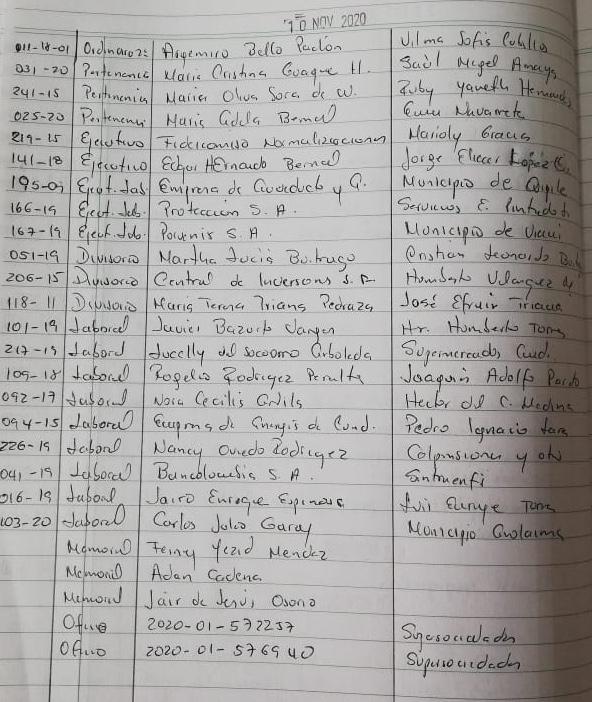 10 NOV 2020
011-18-01 Ordinario Argemiro Bello Pachón Vilma Sofia
031-20 Pertenencia Maria Cristina Guaque H. Saúl Migel Amaya
241-15 Pertinencia Maria Oliva Sora de W. Ruby Yaneth Hernandez
025-20 Pertenenc Maria Adela Bernal Navarrete
219-15 Ejecutivo Fideicomiso Normalizaciones Marioly Gracia
141-18 Ejecutivo Edgar HErnando Bernal Jorge Eliecer López
195-09 Ejecut. Lab. Empresa de Acueducto y A. Municipio de Quipile
166-19 Ejecut. Lab. Protección S. A. Servicios E.
167-19 Ejecut. Lab. Porvenir S. A. Municipio de Viani
051-19 Divisorio Martha Lucia Buitrago Cristian Leonardo
206-15 Divisorio Central de Inversions S. A Humberto Velasquez
118-11 Divisorio Maria Teresa Triana Pedraza José Efrain Triana
101-19 Laboral Javier Bazurto Hr. Humberto Torres
217-19 Laboral Lucelly del Socorro Arboleda Supermercado Cund.
109-18 Laboral Rogelio Rodriguez Peralta Joaquin Adolfo Pardo
092-17 Laboral Nora Cecilia Hector del C. Medina
094-15 Laboral Empresa de Energia de Cund. Pedro Ignacio Lara
226-19 Laboral Nancy Oviedo Rodriguez Colpensiones y otr
041-19 Laboral Bancolombia S. A. Sintraenfi
016-19 Laboral Jairo Enrique Espinosa Luis Enrique Torres
103-20 Laboral Carlos Julio Garay Municipio Anolaima
Memorial Feiny Yezid Mendez
Memorial Adan Cadena
Memorial Jair de Jesús Osorio
Oficio 2020-01-572257 Supersociedades
Oficio 2020-01-576940 Supersociedades